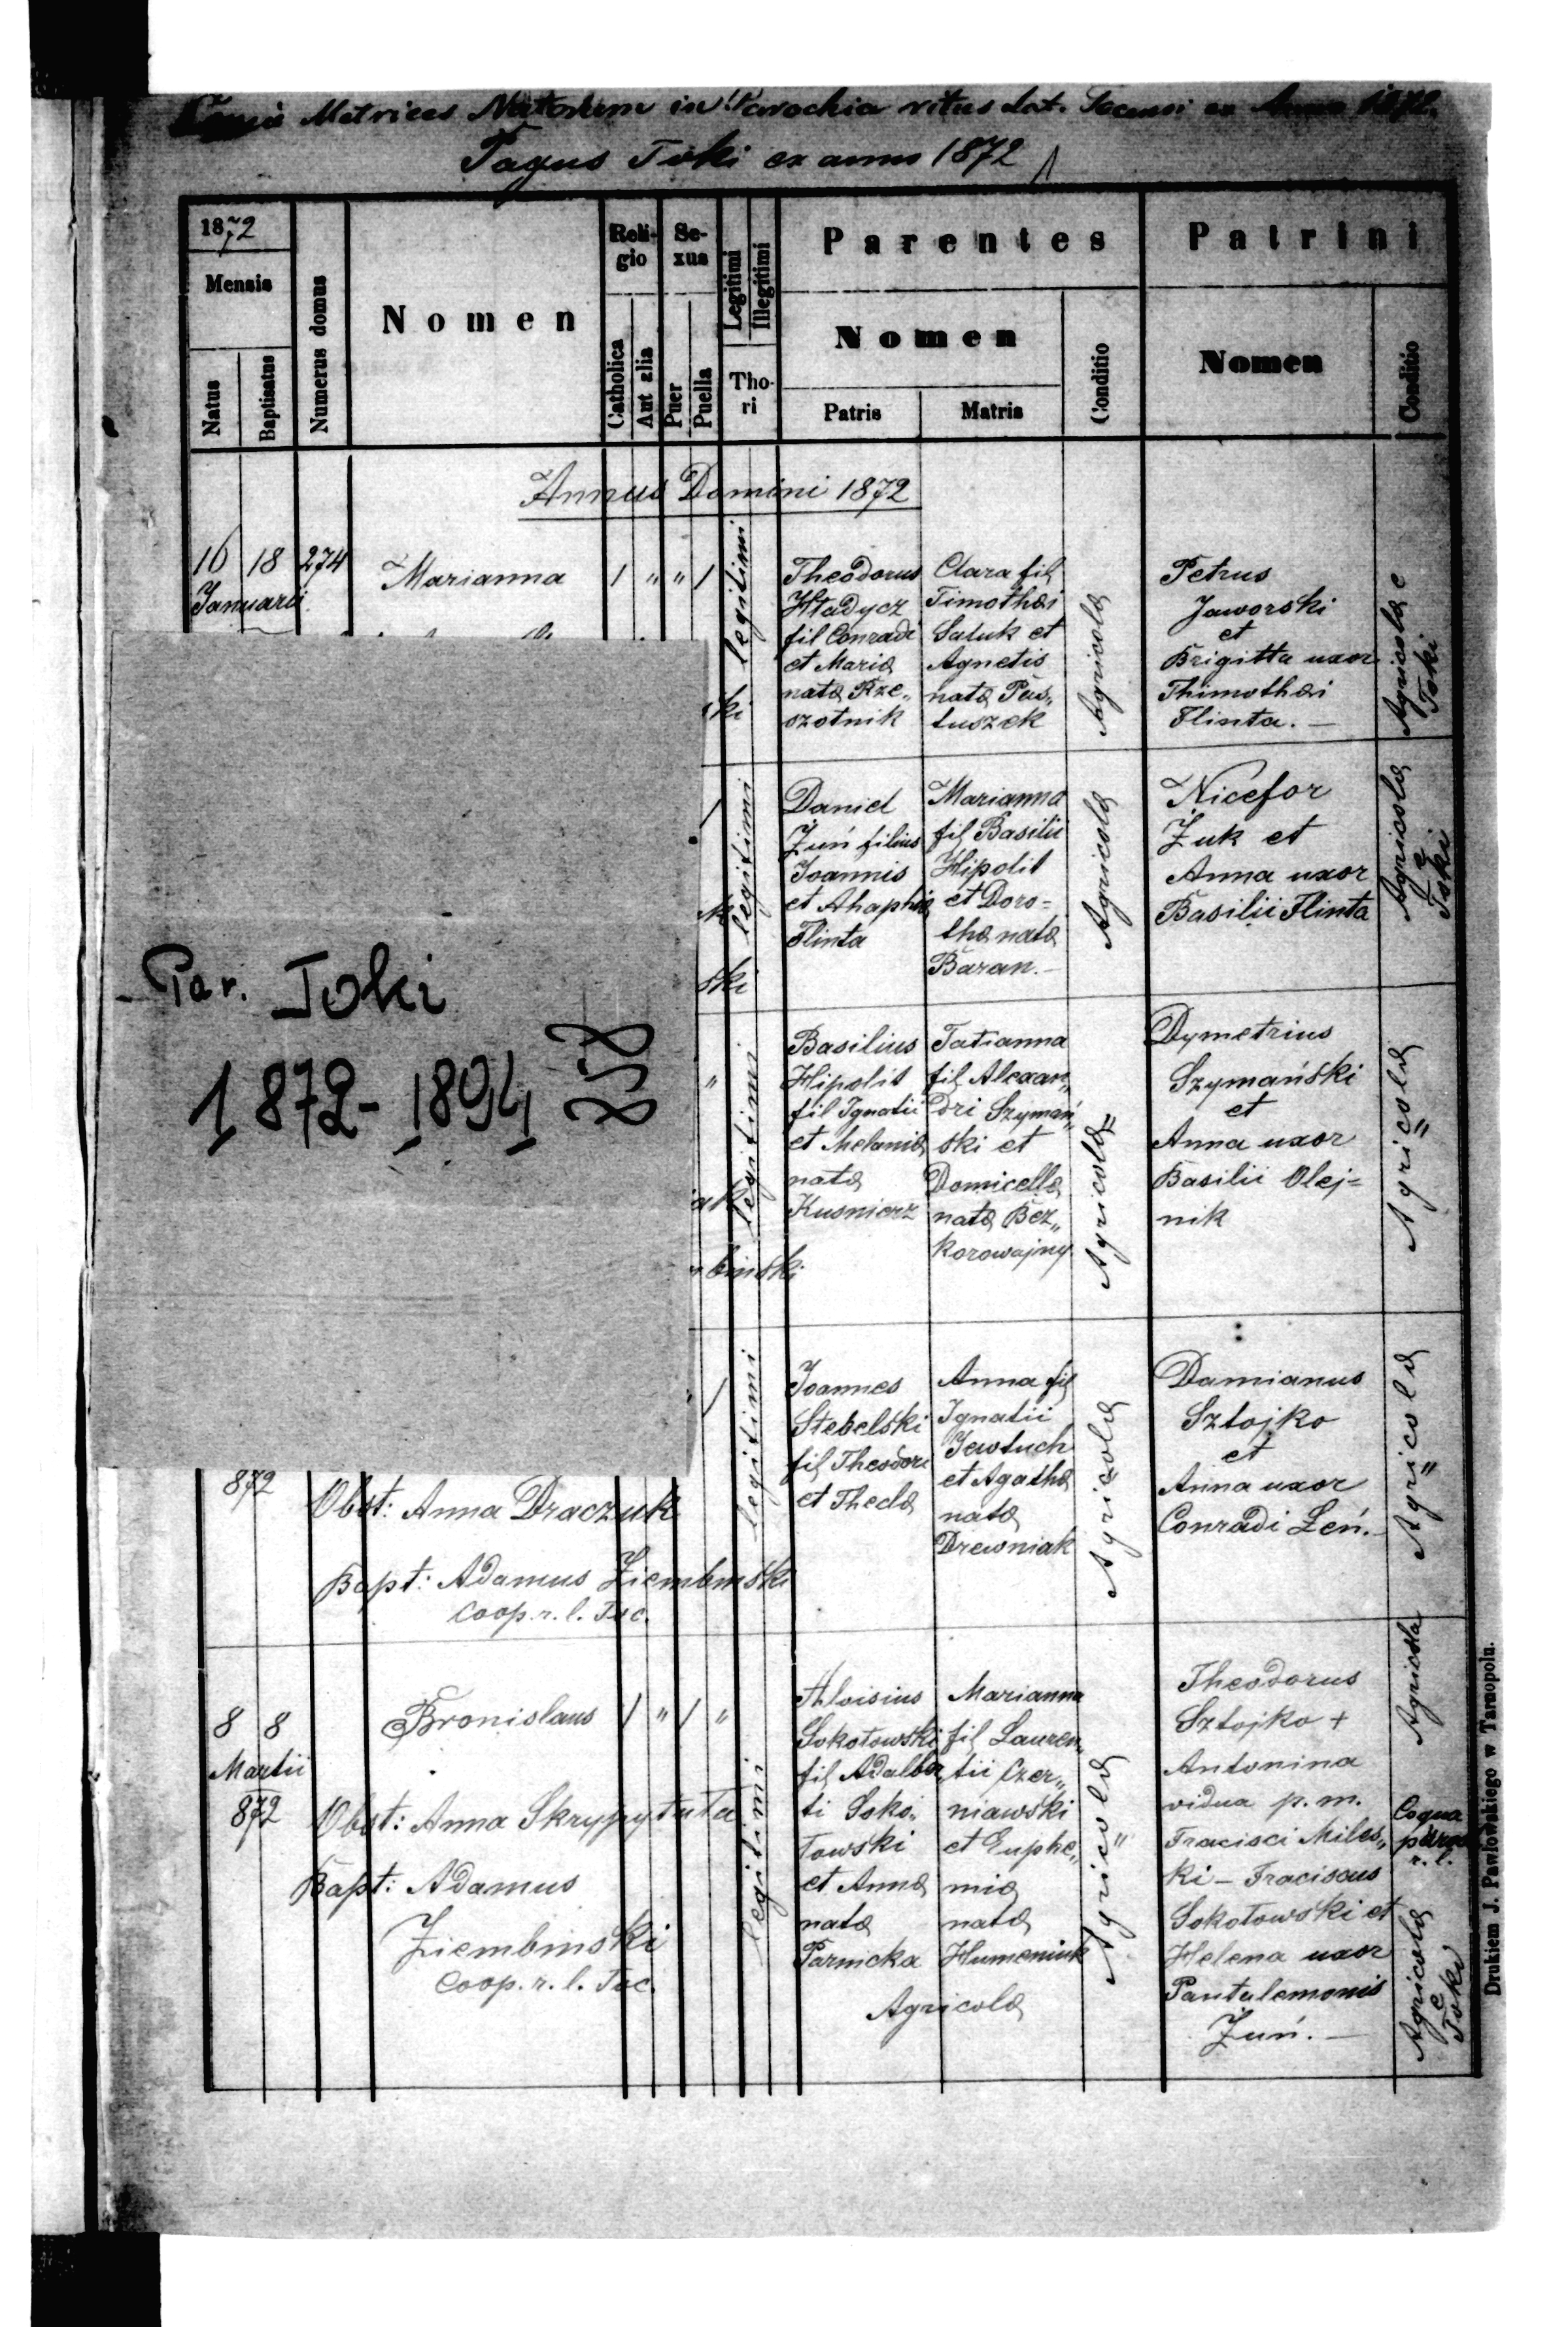 Copia Metrices Natorum in Parochia ritus lat. Tocensi ex Anno 1872.
Pagus Toki ex anno 1872
1872
Mensis
Natus
Baptisatus
Numerus domus
Nomen
Reli-
gio
Catholica
Aut alia
Se-
xus
Puer
Puella
Legitimi
Illegitimi
Tho-
ri
Parentes
Nomen
Patris
Matris
Conditio
Patrini
Nomen
Conditio
Annus Domini 1872
16 18 274
Januarii
Marianna
1 " " 1
legitimi
Theodorus
Hładycz
fil Conradi
et Mariæ
natæ Rze„
szotnik
Clara fil
Timothæi
Saluk et
Agnetis
natæ Pas„
tuszek
Agricolæ
Petrus
Jaworski
et
Brigitta uxor
Thimothæi
Flinta. —
Agricolæ e
Toki
ski
Par. Toki
1872-1894
1
legitimi
ski
Daniel
Żuń filius
Joannis
et Ahaphiæ
Flinta
Marianna
fil Basilii
Hipolit
et Doro=
thæ natæ
Baran.—
Agricolæ
Nicefor
Żuk et
Anna uxor
Basilii Flinta
Agricolæ
e
Toki
"
legitimi
iak
binski
Basilius
Hipolit
fil Ignatii
et Melaniæ
natæ
Kusnierz
Tatianna
fil Alexan„
dri Szymań„
ski et
Domicellæ
natæ Bez„
korowajny
Agricolæ
Dymetrius
Szymański
et
Anna uxor
Basilii Olej=
nik
Agricolæ
872
1
legitimi
Obst: Anna Draczuk
Bapt: Adamus Ziembinski
Coop. r. l. Toc.
Joannes
Stebelski
fil Theodori
et Theclæ
Anna fil
Ignatii
Jewtuch
et Agathæ
natæ
Drewniak
Agricolæ
Damianus
Sztojko
et
Anna uxor
Conradi Żeń.—
Agricolæ
8 8
Martii
872
Bronislaus
1 " 1 "
legitimi
Obst: Anna Skrypytuta
Bapt: Adamus
Ziembinski
Coop. r. l. Toc.
Aloisius
Sokołowski
fil Adalber
ti Soko„
łowski
et Annæ
natæ
Parnicka
Marianna
fil Lauren„
tii Czer„
niawski
et Euphe„
miæ
natæ
Humeniuk
Agricolæ
Agricolæ
Theodorus
Sztojko +
Antonina
vidua p. m.
Fracisci Miles„
ki — Fraciscus
Sokołowski et
Helena uxor
Pantalemonis
Żuń. —
Agricola
Coqua
r. l.
Agricolæ
e
Toki
Drukiem J. Pawłowskiego w Tarnopolu.